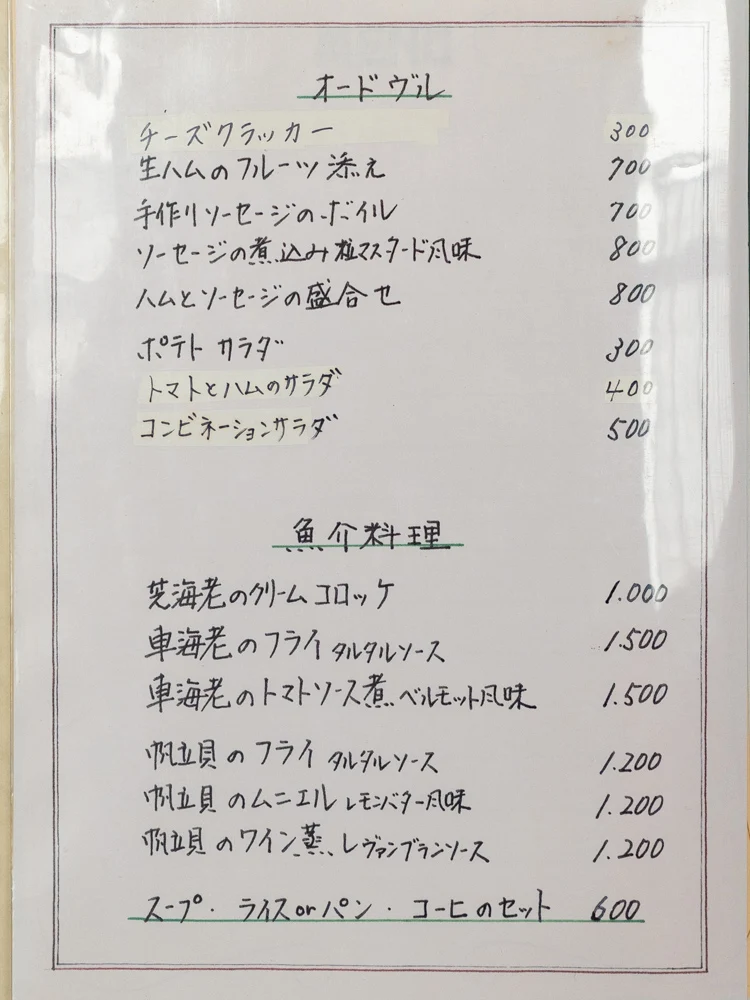 オードヴル
チーズクラッカー 300
生ハムのフルーツ添え 700
手作りソーセージのボイル 700
ソーセージの煮込み粒マスタード風味 800
ハムとソーセージの盛合せ 800
ポテトサラダ 300
トマトとハムのサラダ 400
コンビネーションサラダ 500
魚介料理
芝海老のクリームコロッケ 1.000
車海老のフライ タルタルソース 1.500
車海老のトマトソース煮 ベルモット風味 1.500
帆立貝のフライ タルタルソース 1.200
帆立貝のムニエル レモンバター風味 1.200
帆立貝のワイン蒸し ヴァンブランソース 1.200
スープ・ライスorパン・コーヒのセット 600